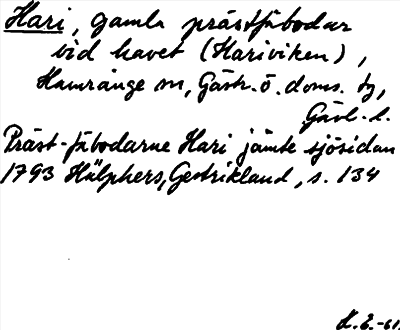 Hari, gamla prästfäbodar
vid havet (Hariviken),
Hamrånge sn, Gästr. ö. doms. tg,
Gävl. l.
Präst-fäbodarne Hari jämte sjösidan
1793 Hülphers, Gestrikland, s. 134
K.E.-61.